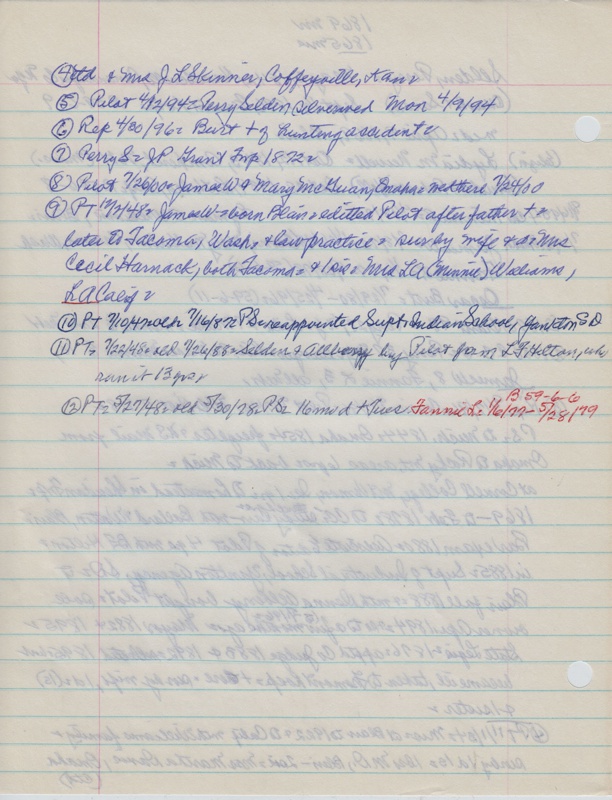 ④ ctd & Mrs J L Skinner, Coffeyville, Kan=
⑤ Pilot 4/12/94= Perry Selden Mon 4/9/94
⑥ Rep 4/30/96= Burt + of hunting accident=
⑦ Perry S= J P Grant Twp 1872=
⑧ Pilot 7/26/00= James W & Mary McGuan, Omaha= wed there 7/24/00
⑨ PT 12/2/48= James W= born Blair= edited Pilot after father +=
later to Tacoma, Wash, & law practice= surv by wife & Mrs
Cecil Harnack, both Tacoma= & 1 sis= Mrs L A (Minnie) Williams,
L A Calif=
⑩ PT 7/10/47= old 7/16/87= P S= reappointed Supt Indian School, Yankton S D
⑪ PT= 7/22/48= old 7/26/88= Selden & Allbery buy Pilot form L F Hilton, who
ran it 13 yrs=
⑫ PT= 5/27/48= old 5/30/78= P S= 16 mo d + Tues= Fannie L= 1/6/77- 5/28/79
B 59-6-6